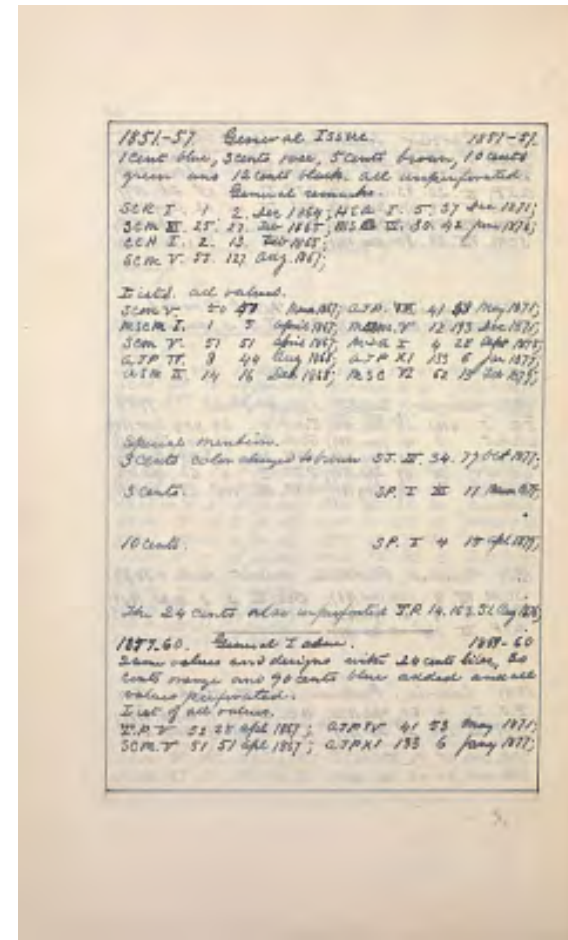 1851-57 General Issue. 1851-57.
1 Cent blue, 3 cents rose, 5 Cents brown, 10 cents
green and 12 Cents black. all unperforated.
General remarks.
SCR I. 1. 2. Dec 1864; I. 5. 37 Dec 1871;
SCM III. 25. 27. Feb 1865; 30. 42 1876;
CCH I. 2. 13. Feb 1865;
SCM. V. 57. 127 Aug. 1867;
List'd. all values.
SCM V. 50 1867; AJP. 41 53 May 1871;
MSCM I. 1 5 April 1867; V 12 193 Dec 1871;
SCM V. 51 51 April 1867; I 4 28 Sept 1875;
AJP IV. 8 44 Aug 1868; AJP XI 133 6 Jan 1877;
ASM II. 14 16 1868; MSC VI 62 15 1879;
Special mention.
3 Cents color changed to brown SJ. 34. 77 Oct 1877;
3 Cents. SP. I III 11
10 Cents. SP. I 4 15 Apl 1877;
The 24 cents also unperforated T.P. 14. 163. 51 Aug 1876
1857.60. General Issue. 60
Same values and designs with 24 cents lilac, 30
cents orange and 90 cents blue added and all
values perforated.
List of all values.
T.P. V 52 28 Apl 1867; AJP IV 41 53 May 1871;
SCM. V 51 51 Apl 1867; AJP XI 133 6 Jany 1877;
5.